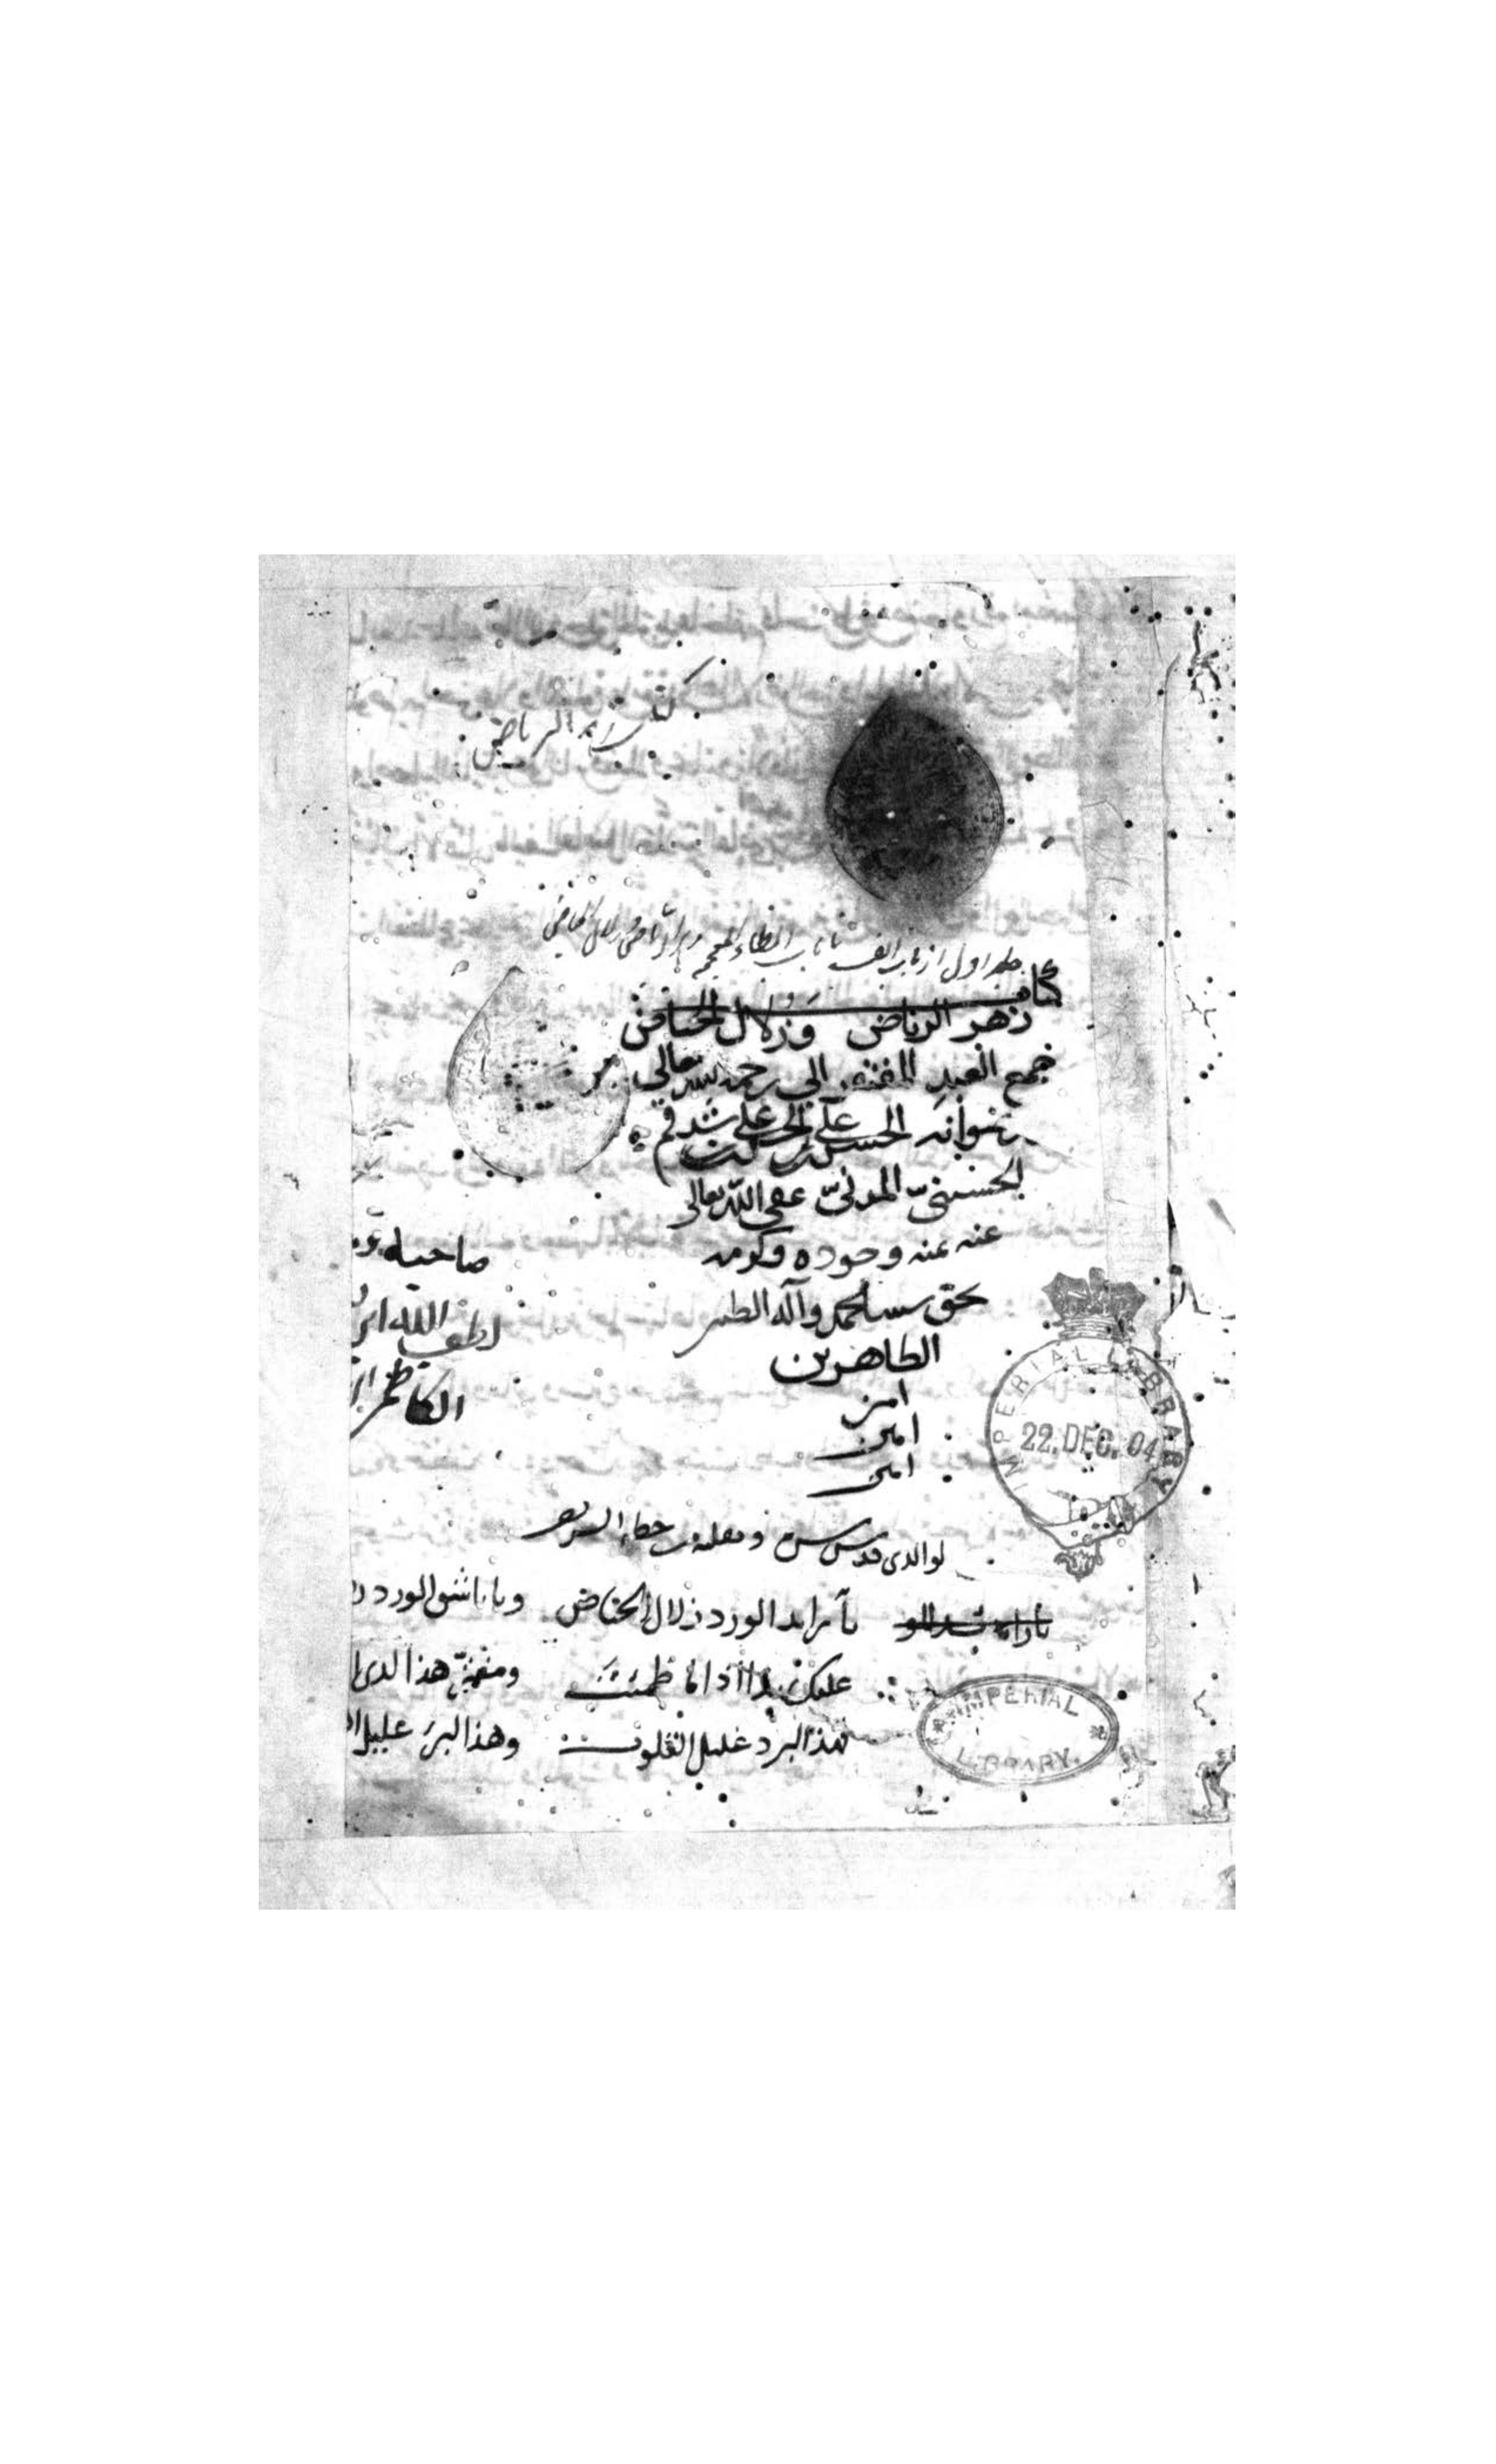 كتاب زهر الرياض
جلد اول از باب الف تا باب الظاء المعجمه زهر الرياض وزلال الحياض
كتاب
زهر الرياض وزلال الحياض
جمع العبد الفقير الى رحمة الله تعالى
ورضوانه الحسن بن علي بن الحسن بن علي بن شدقم
الحسيني المدني عفى الله تعالى
عنه بمنه وجوده وكرمه
بحق سيدنا محمد وآله الطيبين
الطاهرين
امين
امين
امين
صاحبه
لطف الله ابن
الكاظم
لوالدي قدس سره ونقلته من خطه الشريف
يا رائد الورد زلال الحياض ويا ناشق الورد
عليك بهذا اذا ما ظمئت ومنه هذا لدى
فهذا لبرد غليل القلوب وهذا لبرء عليل
IMPERIAL LIBRARY
22. DEC. 04
IMPERIAL
LIBRARY.